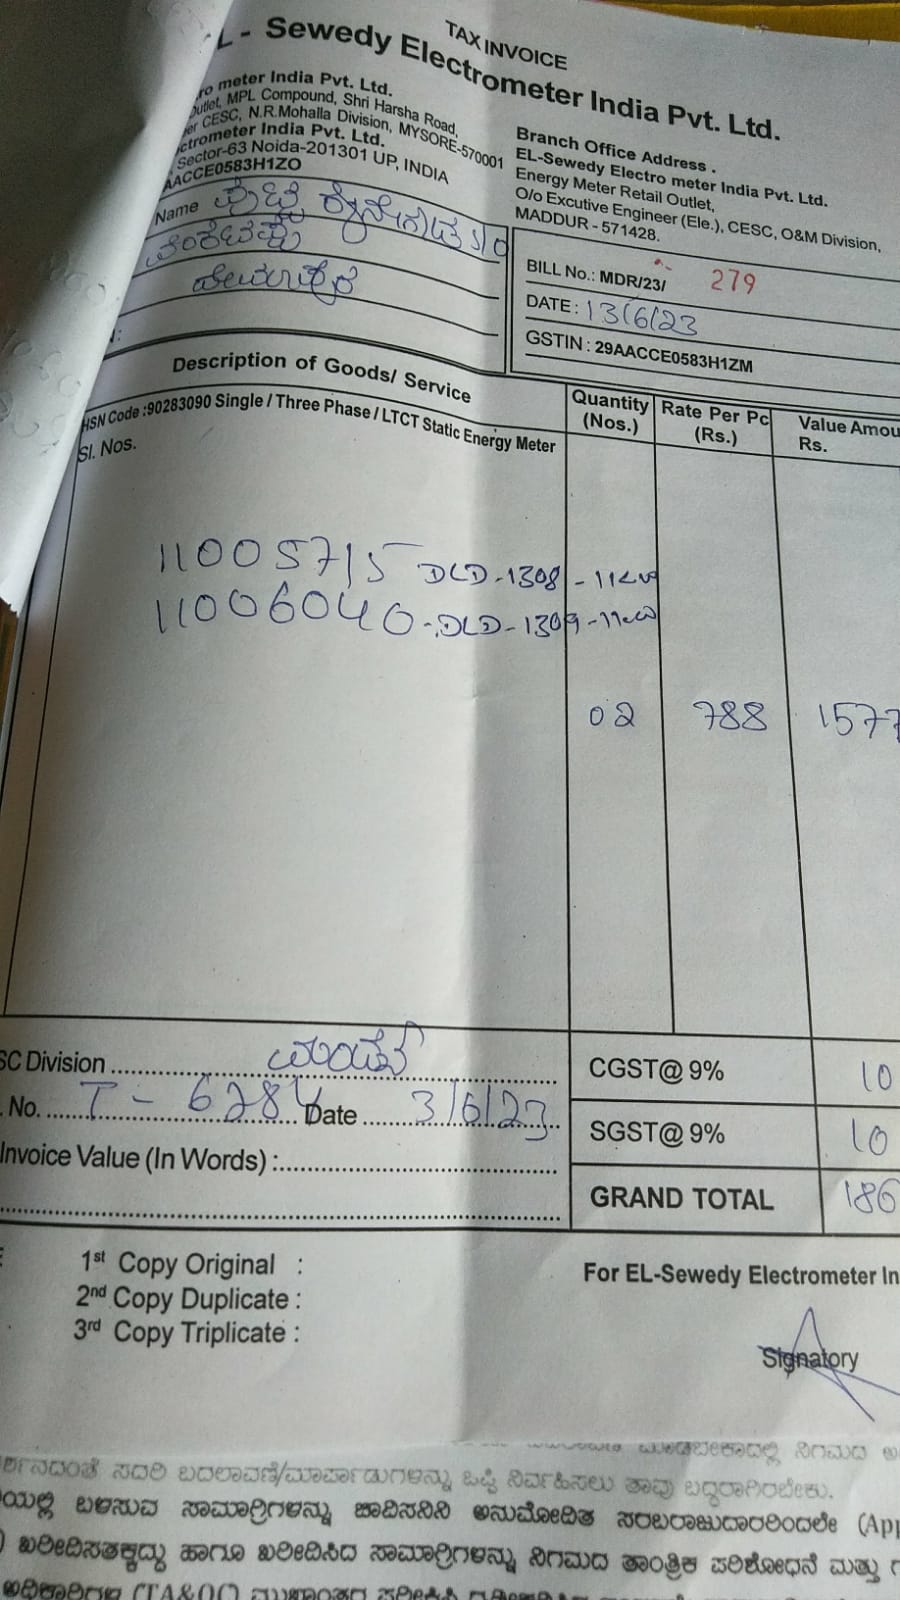 TAX INVOICE
EL - Sewedy Electrometer India Pvt. Ltd.
ro meter India Pvt. Ltd.
Outlet, MPL Compound, Shri Harsha Road,
er CESC, N.R.Mohalla Division, MYSORE-570001
ctrometer India Pvt. Ltd.
Sector-63 Noida-201301 UP, INDIA
AACCE0583H1ZO
Branch Office Address .
EL-Sewedy Electro meter India Pvt. Ltd.
Energy Meter Retail Outlet,
O/o Excutive Engineer (Ele.), CESC, O&M Division,
MADDUR - 571428.
Name
BILL No.: MDR/23/ 279
DATE : 13/6/23
GSTIN : 29AACCE0583H1ZM
Description of Goods/ Service
Quantity (Nos.)
Rate Per Pc (Rs.)
Value Amou
Rs.
HSN Code :90283090 Single / Three Phase / LTCT Static Energy Meter
Sl. Nos.
11005715 DLD-1308 - 11kw
11006040 - DLD-1309-11kw
02 788 1577
SC Division
CGST@ 9% 10
. No. T - 6284 Date 3/6/23
SGST@ 9% 10
Invoice Value (In Words) :
GRAND TOTAL 186
1st Copy Original :
2nd Copy Duplicate :
3rd Copy Triplicate :
For EL-Sewedy Electrometer In
Signatory
ಸದರಿ ಬದಲಾವಣೆ/ಮಾರ್ಪಾಡುಗಳನ್ನು ಒಪ್ಪಿ ನಿರ್ವಹಿಸಲು ತಾವು ಬದ್ಧರಾಗಿರಬೇಕು.
ಯಲ್ಲಿ ಬಳಸುವ ಸಾಮಾಗ್ರಿಗಳನ್ನು ಚಾವಿಸನಿನಿ ಅನುಮೋದಿತ ಸರಬರಾಜುದಾರರಿಂದಲೇ (App
) ಖರೀದಿಸತಕ್ಕದ್ದು ಹಾಗೂ ಖರೀದಿಸಿದ ಸಾಮಾಗ್ರಿಗಳನ್ನು ನಿಗಮದ ತಾಂತ್ರಿಕ ಪರಿಶೋಧನೆ ಮತ್ತು